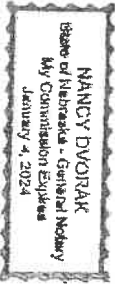 NANCY DVORAK
State of Nebraska - General Notary
My Commission Expires
January 4, 2024